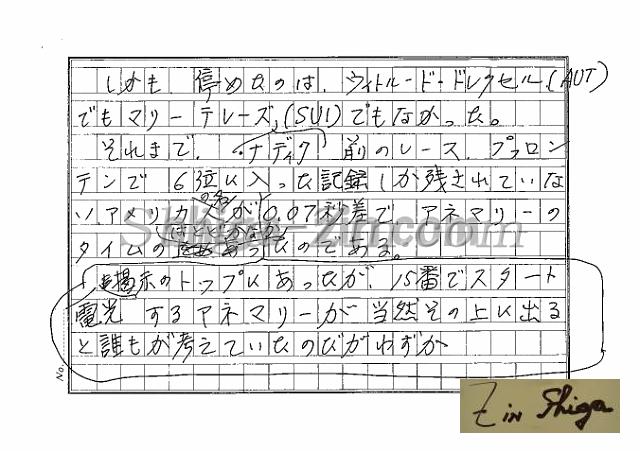 しかも 停めたのは、ウィトルード・ドレクセル、(AUT)
でもマリーテレーズ、(SUI)でもなかった。
それまで、・ナディク 前のレース、プフロン
テンで 6位に入った記録しか残されていな
いアメリカの名が0.07秒差で アネマリーの
タイムの あったのである。
掲示のトップにあったが、15番でスタート
電光 するアネマリーが 当然その上に出る
と誰もが考えていたのだがわずか
No.
Shiga-Zin.com
Z in Shiga